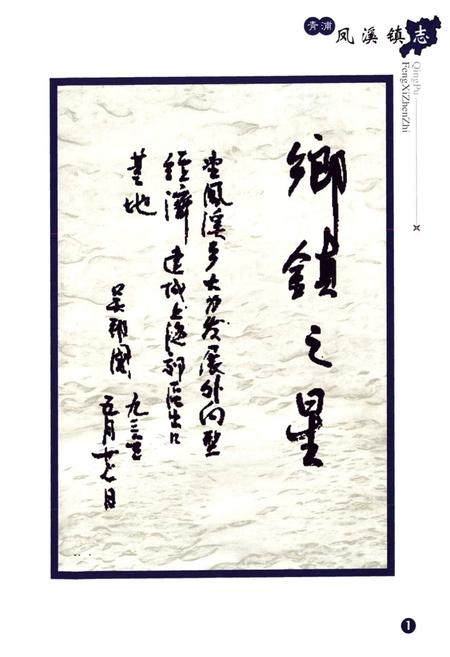 青浦 凤溪镇志
QingPu
FengXiZhenZhi
鄉鎮之星
望凤溪乡大力发展外向型
经济 建成上海郊区出口
基地
吴邦国 九三年
五月十七日
1